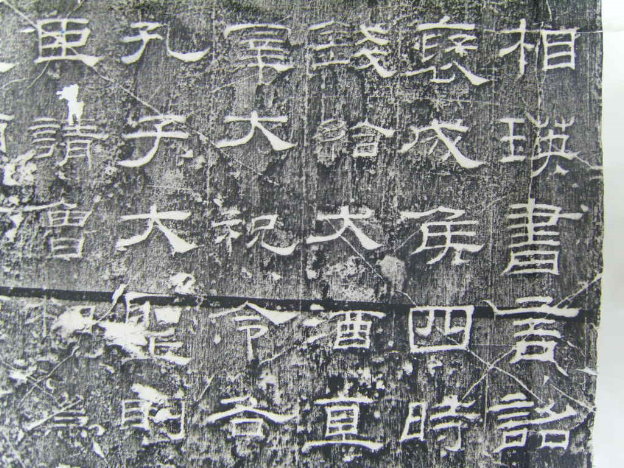 相瑛書言詔
褒成侯四時
錢給犬酒直
宰大祝令各
孔子大聖則
請魯相為